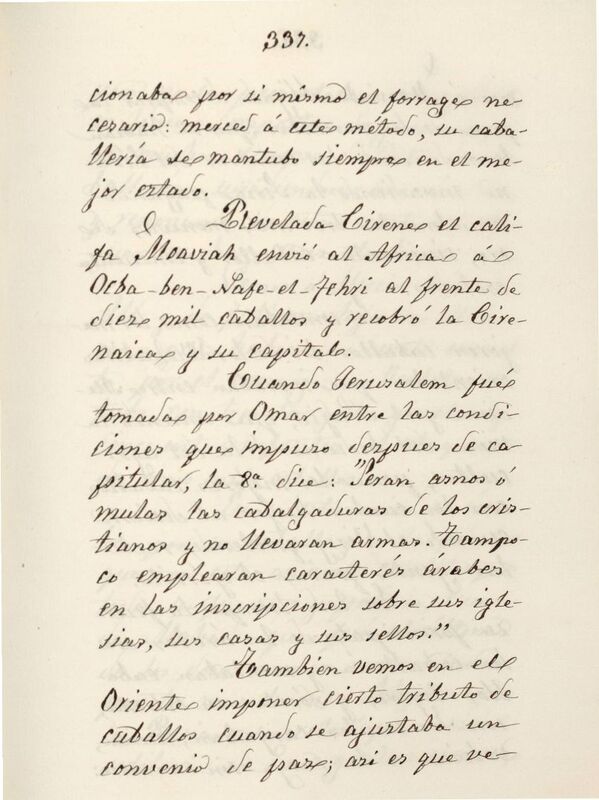 337.
cionaba por si mismo el forrage ne-
cesario: merced á este método, su caba-
llería se mantubo siempre en el me-
jor estado.
Revelada Cirene el cali-
fa Moaviah envió al Africa á
Ocba-ben-Nafe-el-Fehri al frente de
diez mil caballos y recobró la Cire-
naica y su capital.
Cuando Jerusalem fué
tomada por Omar entre las condi-
ciones que impuso despues de ca-
pitular, la 8ª dice: "Seran asnos ó
mulas las cabalgaduras de los cris-
tianos y no llevaran armas. Tampo-
co emplearan caracterés árabes
en las inscripciones sobre sus igle-
sias, sus casas y sus sellos."
Tambien vemos en el
Oriente imponer cierto tributo de
caballos cuando se ajustaba un
convenio de paz; asi es que ve-